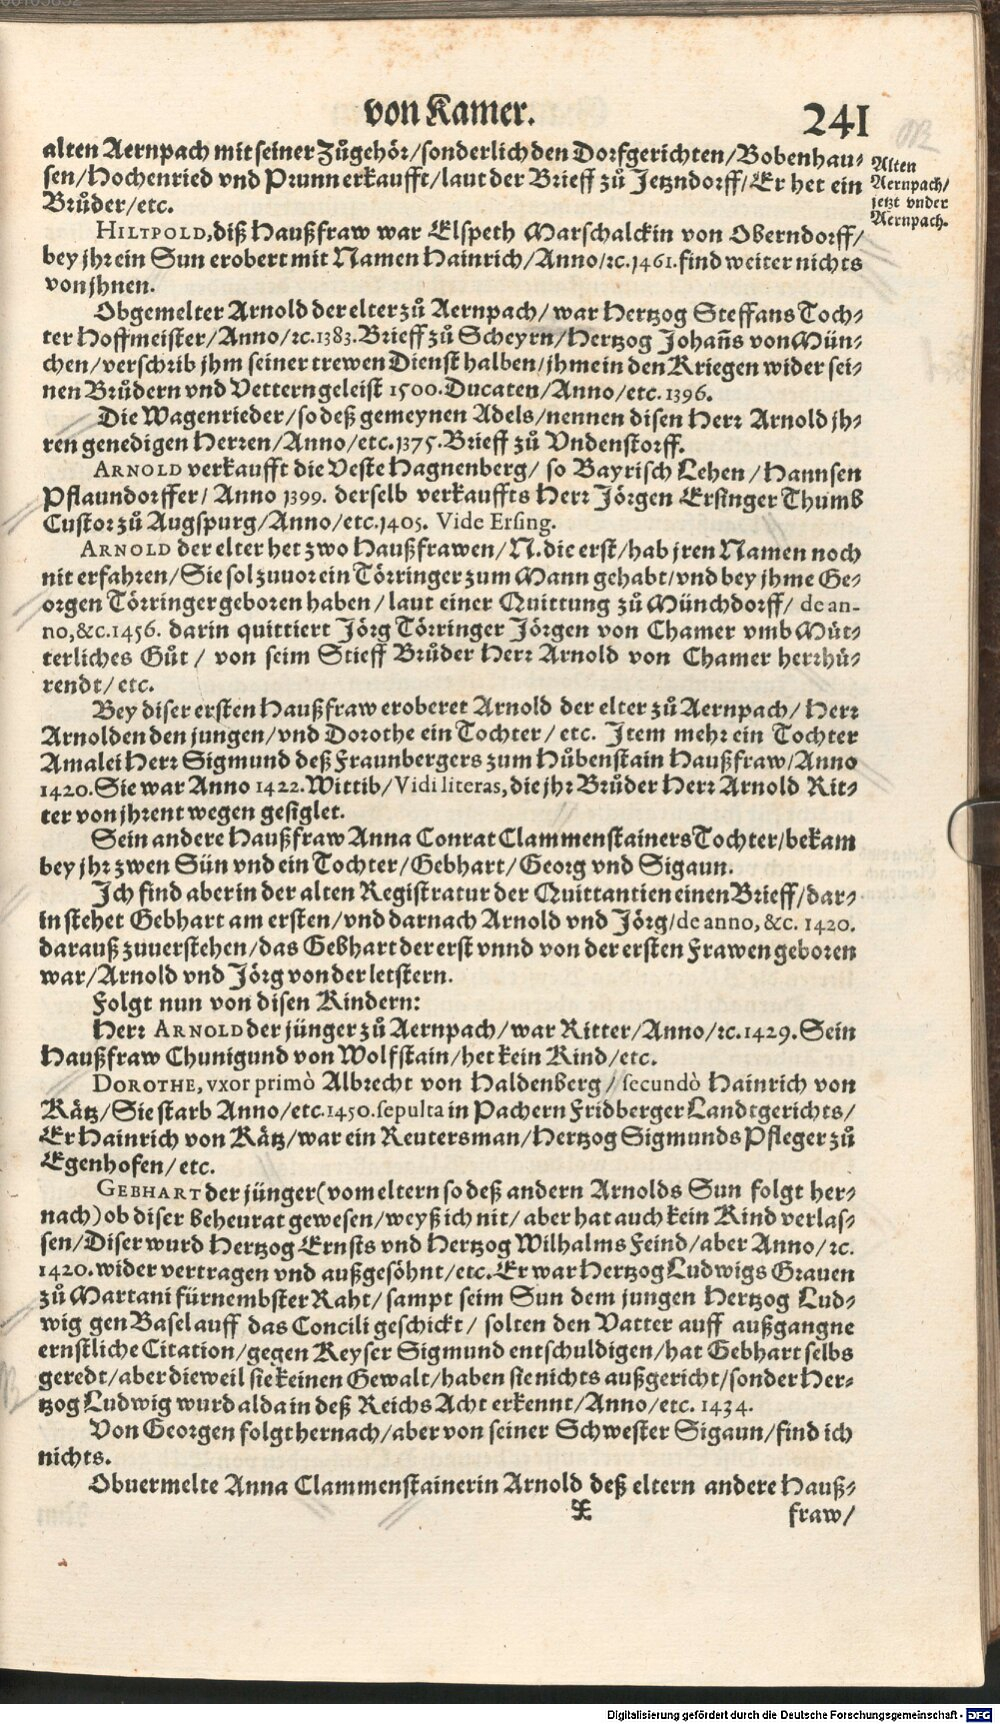 von Kamer.
241
alten Aernpach mit seiner Zůgehör/sonderlich den Dorfgerichten/Bobenhau-
sen/Hochenried vnd Prunn erkaufft/laut der Brieff zů Jetzndorff/Er het ein
Brůder/etc.
Alten
Aernpach/
jetzt vnder
Aernpach.
HILTPOLD, diß Haußfraw war Elspeth Marschalckin von Oberndorff/
bey jhr ein Sun erobert mit Namen Hainrich/Anno/ꝛc.1461.find weiter nichts
von jhnen.
Obgemelter Arnold der elter zů Aernpach/war Hertzog Steffans Toch-
ter Hoffmeister/Anno/ꝛc.1383.Brieff zů Scheyrn/Hertzog Johañs von Mün-
chen/verschrib jhm seiner trewen Dienst halben/jhme in den Kriegen wider sei-
nen Brůdern vnd Vettern geleist 1500.Ducaten/Anno/etc.1396.
Die Wagenrieder/so deß gemeynen Adels/nennen disen Herr Arnold jh-
ren genedigen Herren/Anno/etc.1375.Brieff zů Vndenstorff.
ARNOLD verkaufft die Veste Hagnenberg/ so Bayrisch Lehen/Hannsen
Pflaundorffer/ Anno 1399. derselb verkauffts Herr Jörgen Ersinger Thumb
Custor zů Augspurg/Anno/etc.1405. Vide Ersing.
ARNOLD der elter het zwo Haußfrawen/N.die erst/hab jren Namen noch
nit erfahren/Sie sol zuuor ein Törringer zum Mann gehabt/vnd bey jhme Ge-
orgen Törringer geboren haben/laut einer Quittung zů Münchdorff/ de an-
no,&c.1456. darin quittiert Jörg Törringer Jörgen von Chamer vmb Müt-
terliches Gůt / von seim Stieff Brůder Herr Arnold von Chamer herrhü-
rendt/etc.
Bey diser ersten Haußfraw eroberet Arnold der elter zů Aernpach/ Herr
Arnolden den jungen/vnd Dorothe ein Tochter/etc. Item mehr ein Tochter
Amalei Herr Sigmund deß Fraunbergers zum Hůbenstain Haußfraw/Anno
1420. Sie war Anno 1422. Wittib/Vidi literas, die jhr Brůder Herr Arnold Rit-
ter von jhrent wegen gesiglet.
Sein andere Haußfraw Anna Conrat Clammenstainers Tochter/bekam
bey jhr zwen Sün vnd ein Tochter/Gebhart/Georg vnd Sigaun.
Ich find aber in der alten Registratur der Quittantien einen Brieff/dar-
in stehet Gebhart am ersten/vnd darnach Arnold vnd Jörg/de anno, &c. 1420.
darauß zuuerstehen/das Gebhart der erst vnnd von der ersten Frawen geboren
war/Arnold vnd Jörg von der letstern.
Folgt nun von disen Kindern:
Herr ARNOLD der jünger zů Aernpach/war Ritter/Anno/ꝛc.1429. Sein
Haußfraw Chunigund von Wolfstain/het kein Kind/etc.
DOROTHE, vxor primò Albrecht von Haldenberg/secundò Hainrich von
Kätz/Sie starb Anno/etc.1450.sepulta in Pachern Fridberger Landtgerichts/
Er Hainrich von Kätz/war ein Reutersman/Hertzog Sigmunds Pfleger zů
Egenhofen/etc.
GEBHART der jünger(vom eltern so deß andern Arnolds Sun folgt her-
nach)ob diser beheurat gewesen/weyß ich nit/aber hat auch kein Kind verlas-
sen/Diser wurd Hertzog Ernsts vnd Hertzog Wilhalms Feind/aber Anno/ꝛc.
1420. wider vertragen vnd außgesöhnt/etc. Er war Hertzog Ludwigs Grauen
zů Martani fürnembster Raht/sampt seim Sun dem jungen Hertzog Lud-
wig gen Basel auff das Concili geschickt/ solten den Vatter auff außgangne
ernstliche Citation/gegen Keyser Sigmund entschuldigen/hat Gebhart selbs
geredt/aber dieweil sie keinen Gewalt/haben sie nichts außgericht/sonder Her-
tzog Ludwig wurd alda in deß Reichs Acht erkennt/Anno/etc. 1434.
Von Georgen folgt hernach/aber von seiner Schwester Sigaun/find ich
nichts.
Obuermelte Anna Clammenstainerin Arnold deß eltern andere Hauß-
fraw/
Digitalisierung gefördert durch die Deutsche Forschungsgemeinschaft - DFG